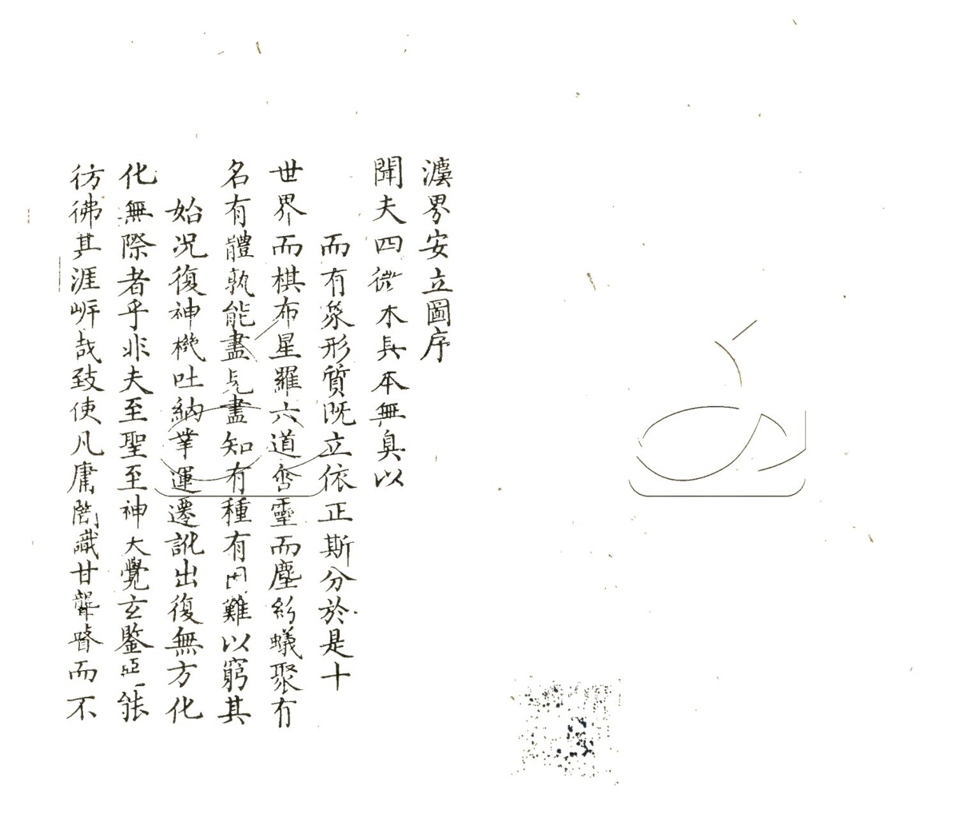 灋界安立圖序
聞夫四微本無臭以
而有象形質既立依正斯分於是十
世界而棋布星羅六道含靈而塵紛蟻聚有
名有體孰能盡見盡知有種有因難以窮其
始况復神機吐納業運遷訛出復無方化
化無際者乎非夫至聖至神大覺玄鑒能
彷彿其涯岸哉致使凡庸闇識甘聾瞽而不